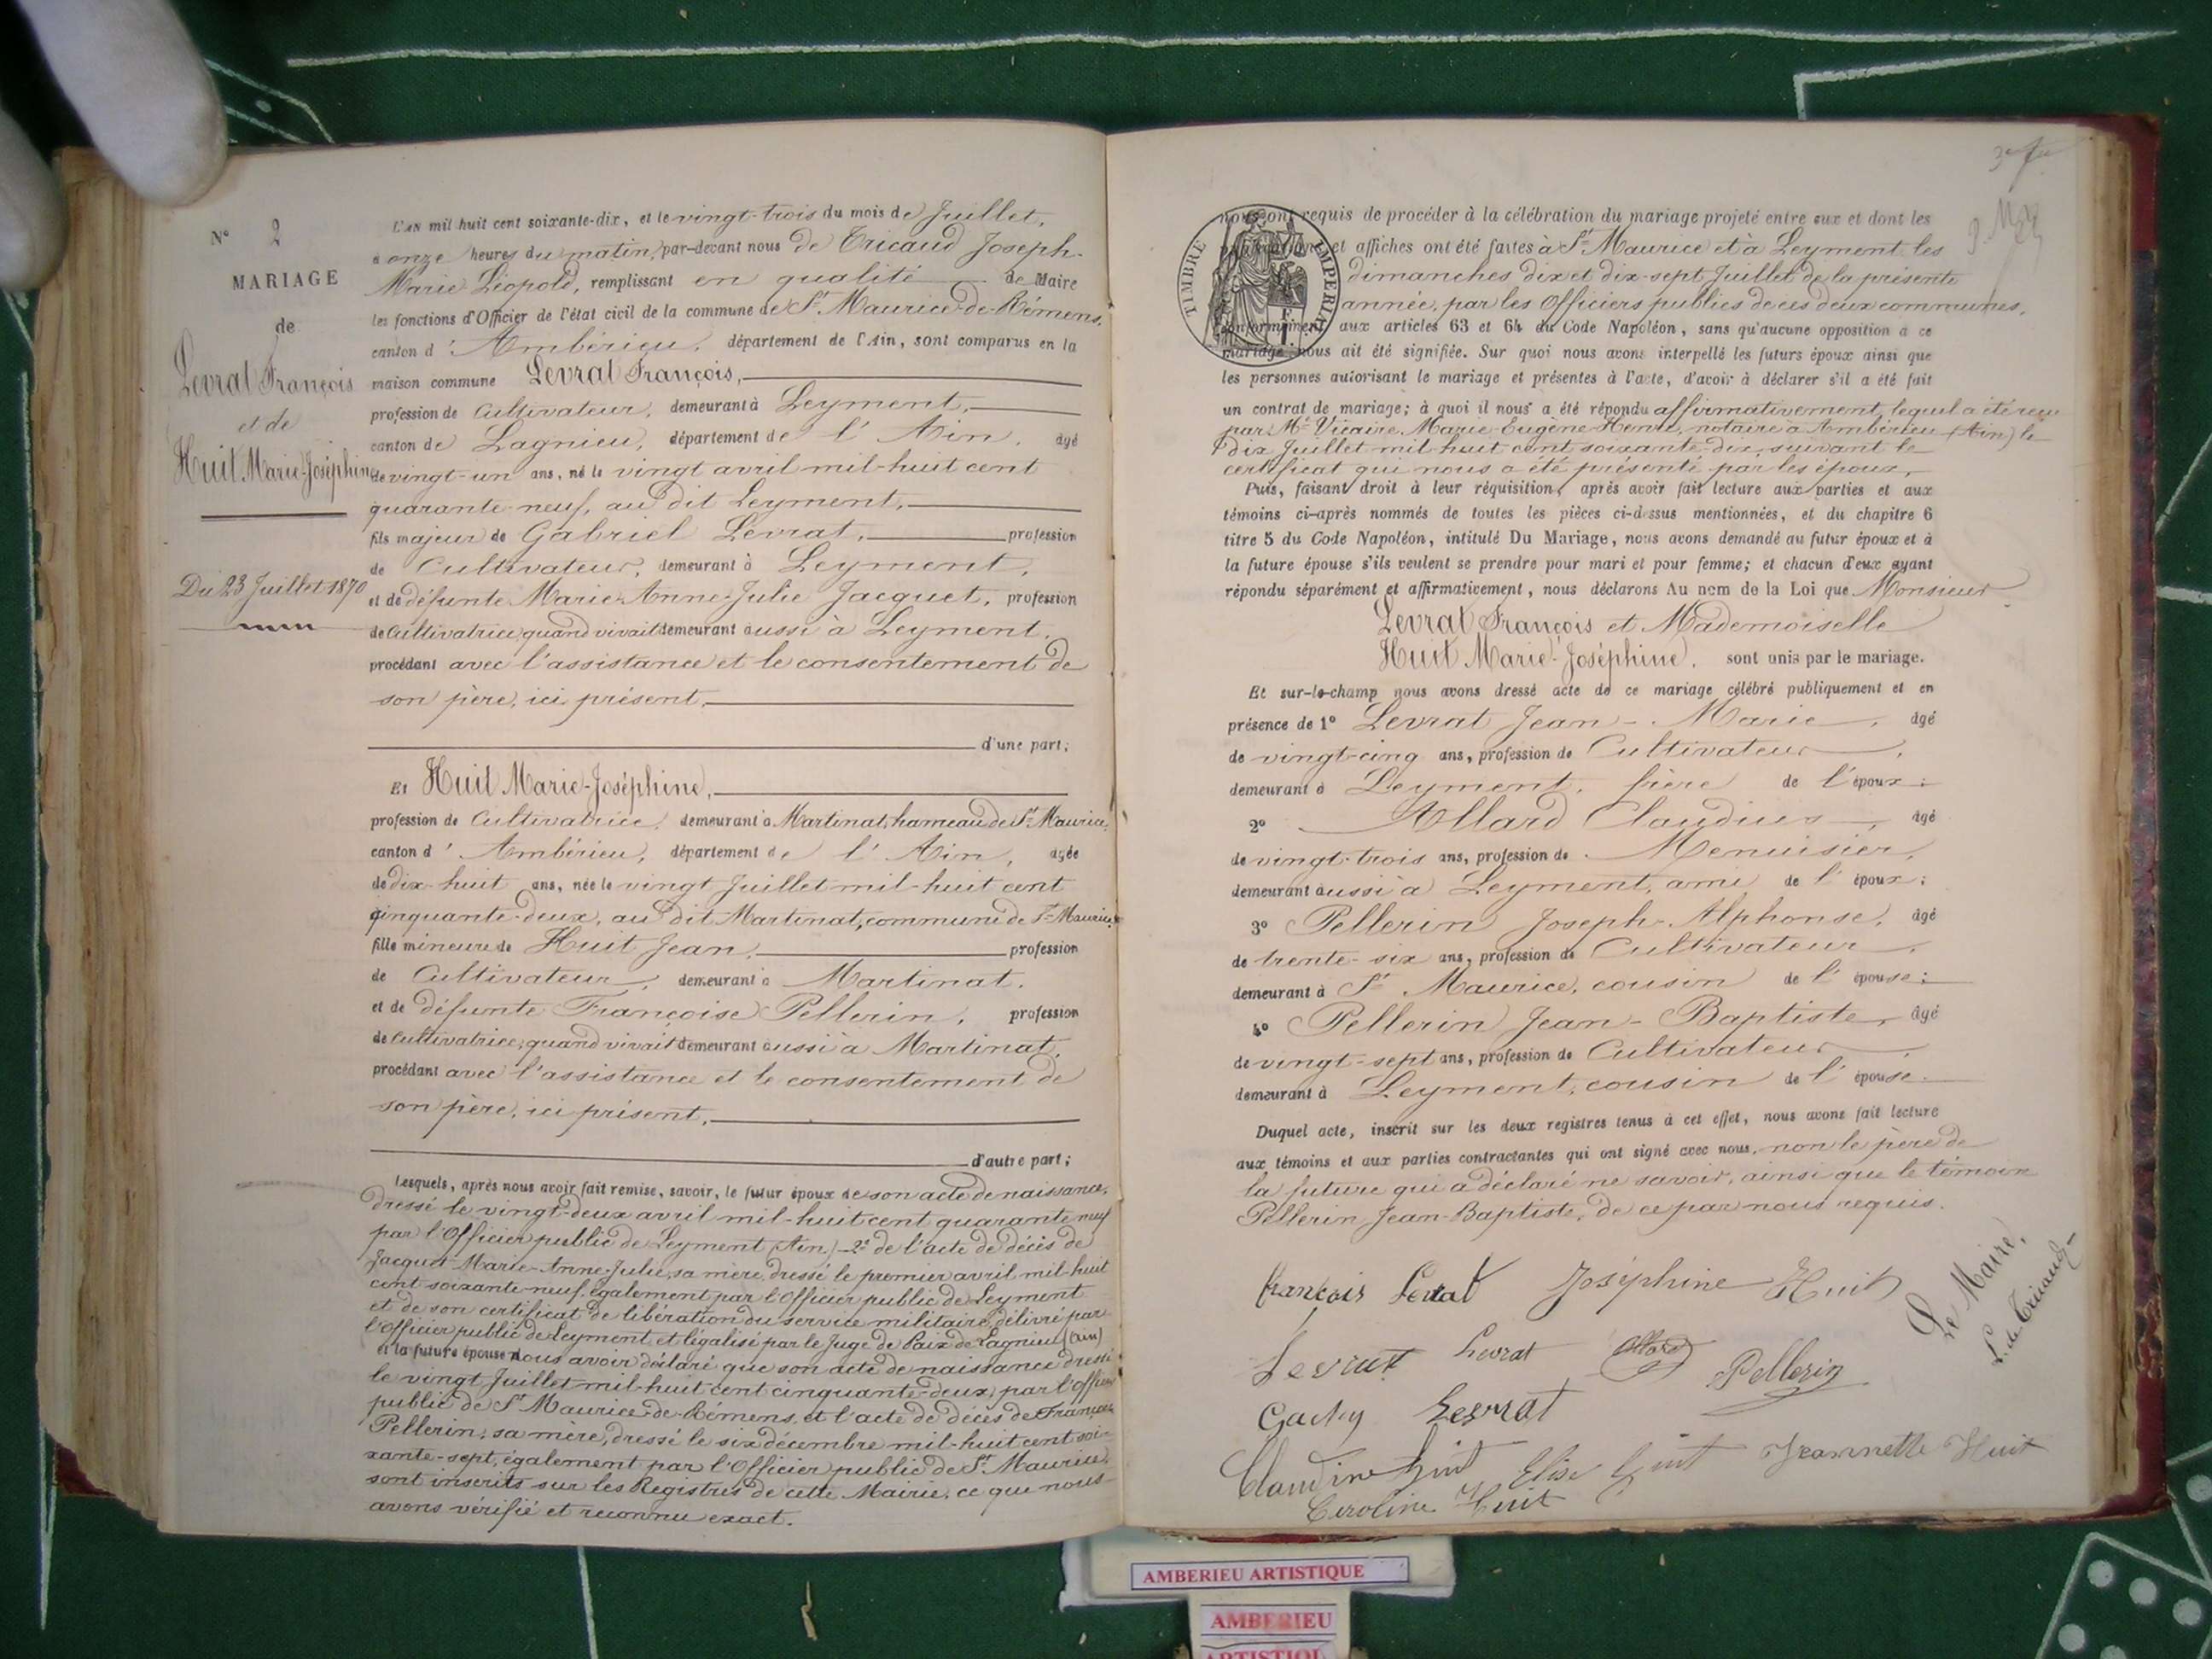 N° 2
MARIAGE
de
Levrat François
et de
Huit Marie-Joséphine
Du 23 Juillet 1870
L'AN mil huit cent soixante-dix, et le vingt-trois du mois de Juillet,
à onze heures du matin, par-devant nous de Tricaud Joseph-
Marie Léopold, remplissant en qualité de Maire
les fonctions d'Officier de l'état civil de la commune de St Maurice-de-Rémens,
canton d'Ambérieu, département de l'Ain, sont comparus en la
maison commune Levrat François,
profession de Cultivateur, demeurant à Leyment,
canton de Lagnieu, département de l'Ain, âgé
de vingt-un ans, né le vingt avril mil-huit cent
quarante-neuf, au dit Leyment,
fils majeur de Gabriel Levrat, profession
de Cultivateur, demeurant à Leyment,
et de défunte Marie-Anne-Julie Jacquet, profession
de Cultivatrice quand vivait demeurant aussi à Leyment,
procédant avec l'assistance et le consentement de
son père, ici présent,
d'une part;
Et Huit Marie-Joséphine,
profession de Cultivatrice, demeurant à Martinat, hameau de St Maurice,
canton d'Ambérieu, département de l'Ain, âgée
de dix-huit ans, née le vingt Juillet mil-huit cent
cinquante-deux, au dit Martinat, commune de St Maurice,
fille mineure de Huit Jean, profession
de Cultivateur, demeurant à Martinat,
et de défunte Françoise Pellerin, profession
de Cultivatrice, quand vivait demeurant aussi à Martinat,
procédant avec l'assistance et le consentement de
son père, ici présent,
d'autre part;
Lesquels, après nous avoir fait remise, savoir, le futur époux de son acte de naissance,
dressé le vingt-deux avril mil-huit cent quarante neuf
par l'Officier public de Leyment (Ain) 2° de l'acte de décès de
Jacquet Marie-Anne-Julie, sa mère, dressé le premier avril mil-huit
cent soixante-neuf, également par l'Officier public de Leyment
et de son certificat de libération du service militaire, délivré par
l'Officier public de Leyment et légalisé par le Juge de Paix de Lagnieu (Ain)
et la future épouse nous avoir déclaré que son acte de naissance dressé
le vingt Juillet mil-huit cent cinquante-deux, par l'Officier
public de St Maurice-de-Rémens, et l'acte de décès de Françoise
Pellerin, sa mère, dressé le six décembre mil-huit cent soi-
xante-sept, également par l'Officier public de St Maurice,
sont inscrits sur les Registres de cette Mairie, ce que nous
avons vérifié et reconnu exact.
TIMBRE IMPERIAL
nous ont requis de procéder à la célébration du mariage projeté entre eux et dont les
et affiches ont été faites à St Maurice et à Leyment les
dimanches dix et dix-sept Juillet de la présente
année, par les Officiers publics de ces deux communes,
conformément aux articles 63 et 64 du Code Napoléon, sans qu'aucune opposition à ce
mariage nous ait été signifiée. Sur quoi nous avons interpellé les futurs époux ainsi que
les personnes autorisant le mariage et présentes à l'acte, d'avoir à déclarer s'il a été fait
un contrat de mariage; à quoi il nous a été répondu affirmativement, lequel a été reçu
par Me Vicaire Marie-Eugène-Henri, notaire à Ambérieu (Ain) le
dix Juillet mil-huit cent soixante-dix, suivant le
certificat qui nous a été présenté par les époux,
Puis, faisant droit à leur réquisition, après avoir fait lecture aux parties et aux
témoins ci-après nommés de toutes les pièces ci-dessus mentionnées, et du chapitre 6
titre 5 du Code Napoléon, intitulé Du Mariage, nous avons demandé au futur époux et à
la future épouse s'ils veulent se prendre pour mari et pour femme; et chacun d'eux ayant
répondu séparément et affirmativement, nous déclarons Au nom de la Loi que Monsieur
Levrat François et Mademoiselle
Huit Marie-Joséphine, sont unis par le mariage.
Et sur-le-champ nous avons dressé acte de ce mariage célébré publiquement et en
présence de 1° Levrat Jean-Marie, âgé
de vingt-cinq ans, profession de Cultivateur,
demeurant à Leyment, frère de l'époux;
2° Allard Claudius, âgé
de vingt-trois ans, profession de Menuisier,
demeurant aussi à Leyment, ami de l'époux;
3° Pellerin Joseph-Alphonse, âgé
de trente-six ans, profession de Cultivateur,
demeurant à St Maurice, cousin de l'épouse;
4° Pellerin Jean-Baptiste, âgé
de vingt-sept ans, profession de Cultivateur,
demeurant à Leyment, cousin de l'épouse.
Duquel acte, inscrit sur les deux registres tenus à cet effet, nous avons fait lecture
aux témoins et aux parties contractantes qui ont signé avec nous, non le père de
la future qui a déclaré ne savoir, ainsi que le témoin
Pellerin Jean-Baptiste, de ce par nous requis.
françois Levrat Joséphine Huit
Le Maire,
L. de Tricaud
Levrat Levrat Allard Pellerin
Levrat
Claudine Huit Elise Huit Jeannette Huit
Caroline Huit
AMBERIEU ARTISTIQUE
AMBERIEU
ARTISTIQUE